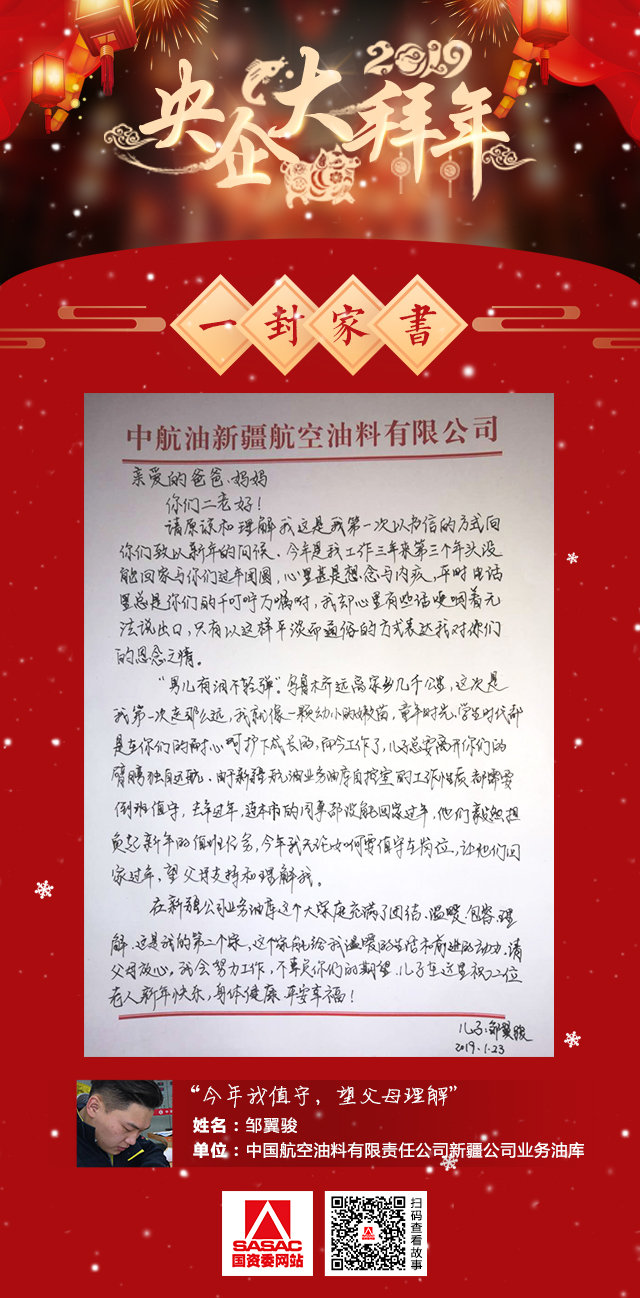 2019
央企大拜年
一封家書
中航油新疆航空油料有限公司
亲爱的爸爸、妈妈
你们二老好！
请原谅和理解我这是我第一次以书信的方式向
你们致以新年的问候。今年是我工作三年来第三个年头没
能回家与你们过年团圆，心里甚是想念与内疚，平时电话
里总是你们的千叮咛万嘱咐，我却心里有些话哽咽着无
法说出口，只有以这样平淡而通俗的方式表达我对你们
的思念之情。
“男儿有泪不轻弹”。乌鲁木齐远离家乡几千公里，这次是
我第一次走那么远，我就像一颗幼小的嫩苗，童年时光、学生时代都
是在你们的耐心呵护下成长的，而今工作了，儿子总要离开你们的
臂膀独自远航。由于新疆航油业务油库自控室的工作性质都需要
倒班值守，去年过年，连本市的同事都没能回家过年，他们毅然担
负起新年的值班任务，今年我无论如何要值守在岗位，让他们回
家过年，望父母支持和理解我。
在新疆公司业务油库这个大家庭充满了团结、温暖、包容、理
解，这是我的第二个家，这个家能给我温暖的生活和前进的动力，请
父母放心。我会努力工作，不辜负你们的期望，儿子在这里祝二位
老人新年快乐，身体健康，平安幸福！
儿子：邹翼骏
2019.1.23
“今年我值守，望父母理解”
姓名：邹翼骏
单位：中国航空油料有限责任公司新疆公司业务油库
SASAC
国资委网站
扫码查看故事